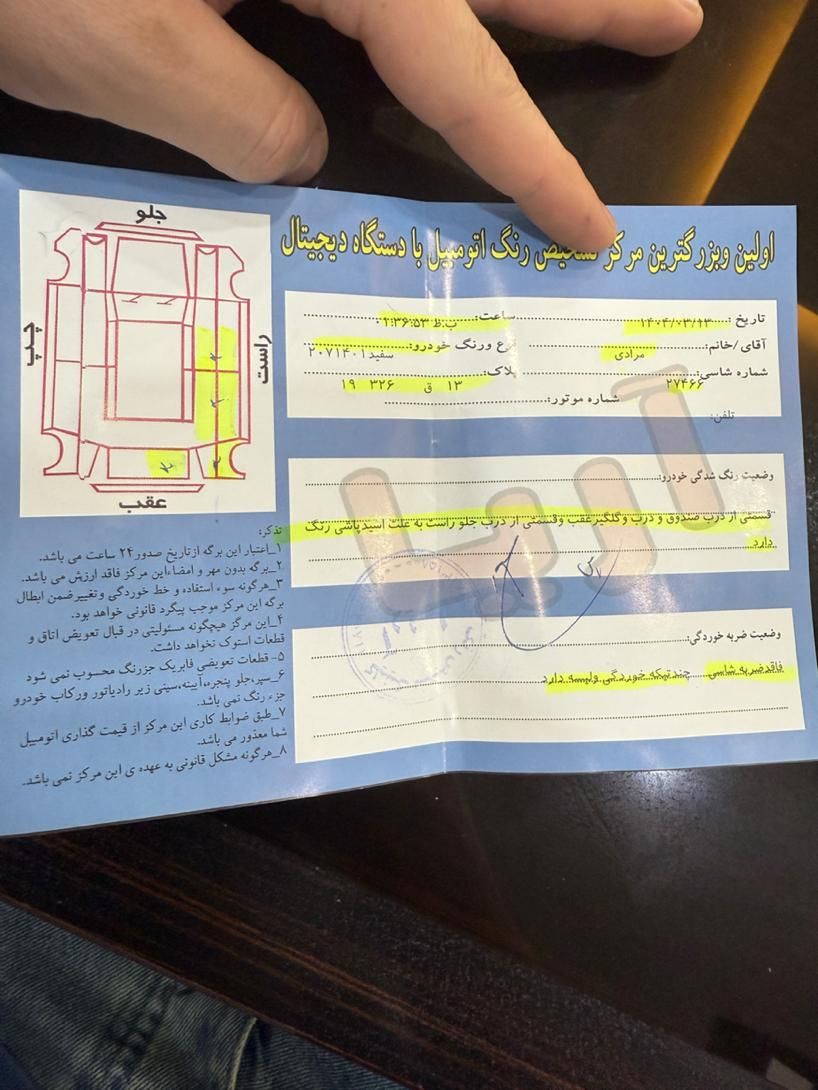 اولین وبزرگترین مرکز تشخیص رنگ اتومبیل با دستگاه دیجیتال
تاریخ: ۱۴۰۴/۰۳/۱۳ ساعت: ۰۱:۳۶:۵۳ ب.ظ
آقای/خانم: مرادی نوع ورنگ خودرو: سفید ۲۰۷۱۴۰۱
شماره شاسی: ۲۷۴۶۶ پلاک: ۱۳ ق ۳۲۶ ۱۹
شماره موتور:
تلفن:
وضعیت رنگ شدگی خودرو:
قسمتی از درب صندوق و درب وگلگیرعقب وقسمتی از درب جلو راست به علت اسیدپاشی رنگ
دارد
وضعیت ضربه خوردگی:
فاقدضربه شاسی چندتیکه خوردگی ولیسه دارد
آریا
جلو
راست
چپ
عقب
تذکر:
۱_اعتبار این برگه ازتاریخ صدور۲۴ ساعت می باشد.
۲_برگه بدون مهر و امضاءاین مرکز فاقد ارزش می باشد.
۳_هرگونه سوء استفاده و خط خوردگی وتغییرضمن ابطال
برگه این مرکز موجب پیگرد قانونی خواهد بود.
۴_این مرکز هیچگونه مسئولیتی در قبال تعویض اتاق و
قطعات استوک نخواهد داشت.
۵- قطعات تعویضی فابریک جزرنگ محسوب نمی شود
۶_سپرجلو پنجره،آیینه،سینی زیر رادیاتور ورکاب خودرو
جزء رنگ نمی باشد.
۷_طبق ضوابط کاری این مرکز از قیمت گذاری اتومبیل
شما معذور می باشد.
۸_هرگونه مشکل قانونی به عهده ی این مرکز نمی باشد.